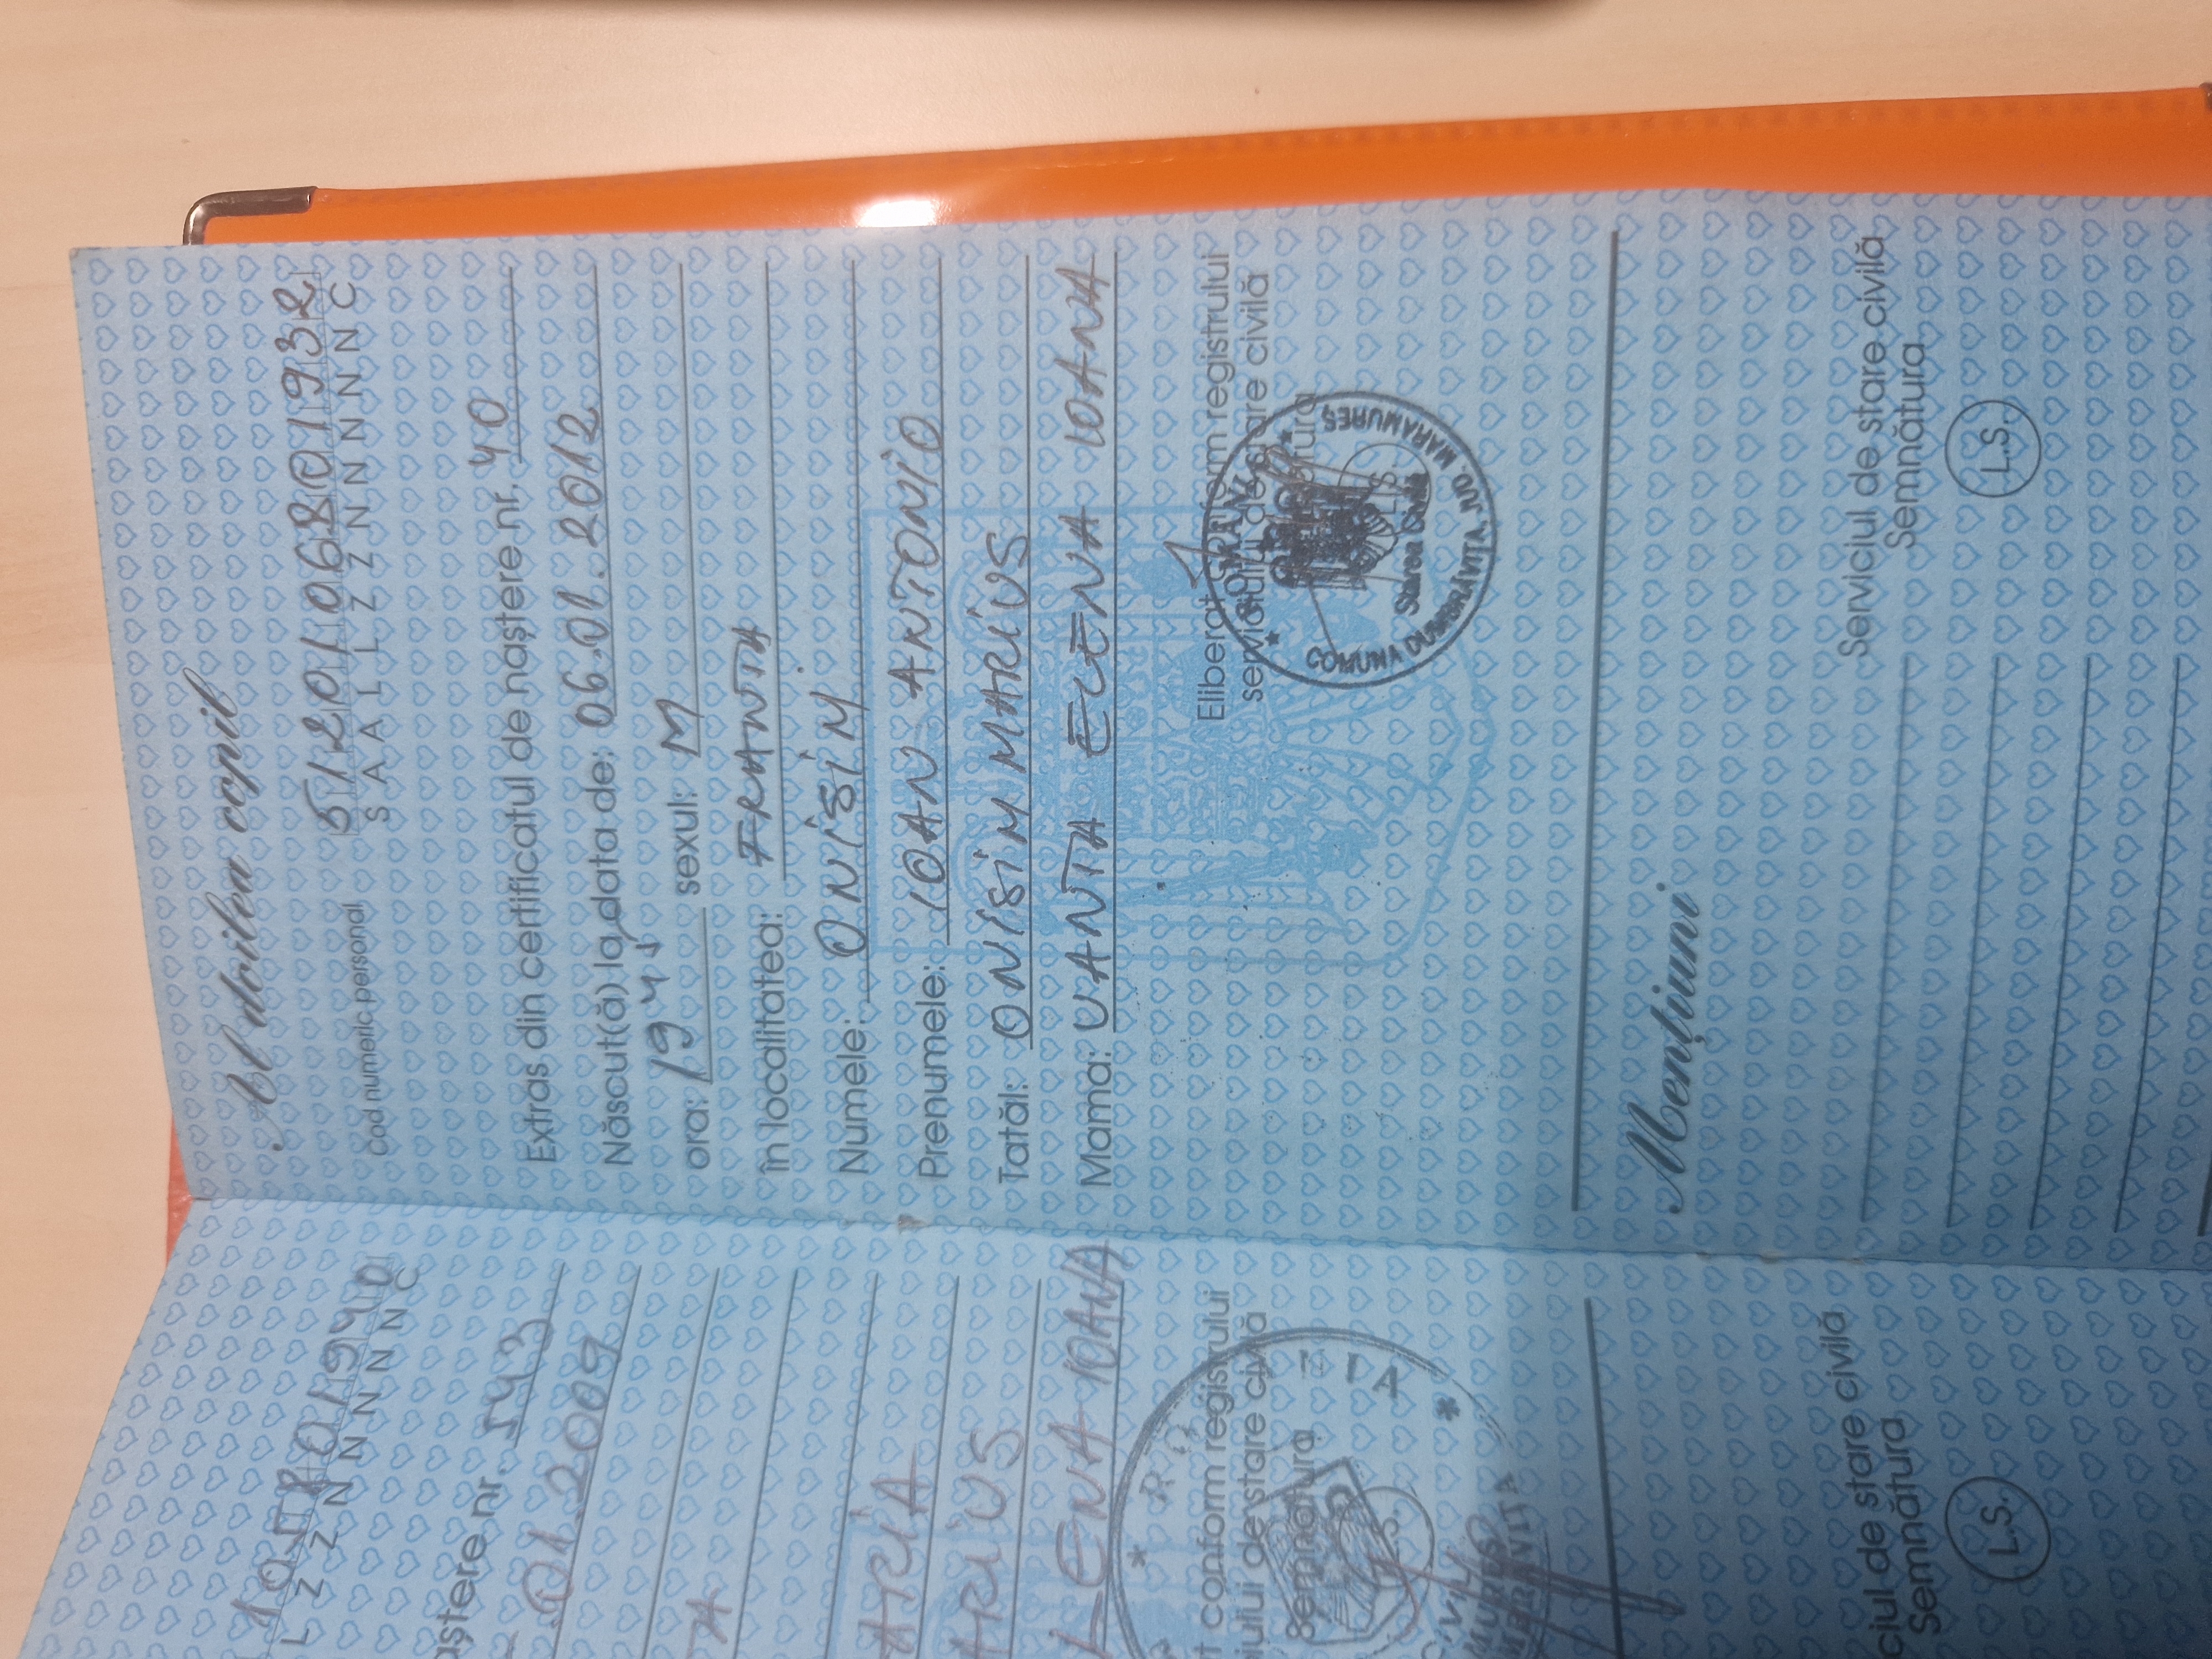 Al doilea copil
Cod numeric personal 5120106801932
S A A L L Z Z N N N N N C
Extras din certificatul de naștere nr. 40
Născut(ă) la data de: 06.01.2012
ora: 19 sexul: M
în localitatea: FRANȚA
Numele: ONISIM
Prenumele: IOAN ANTONIO
Tatăl: ONISIM MARIUS
Mama: VANTA ELENA IOANA
Eliberat conform registrului
serviciului de stare civilă
Semnătura
L.S.
ROMÂNIA
COMUNA DUMBRĂVIȚA, JUD. MARAMUREȘ
Starea Civilă
Mențiuni
Serviciul de stare civilă
Semnătura
L.S.
L Z Z N N N N N C
aștere nr. 543
01.2009
ARIA
ARIUS
LENA IOANA
t conform registrului
iului de stare civilă
Semnătura
L.S.
ciul de stare civilă
Semnătura
L.S.